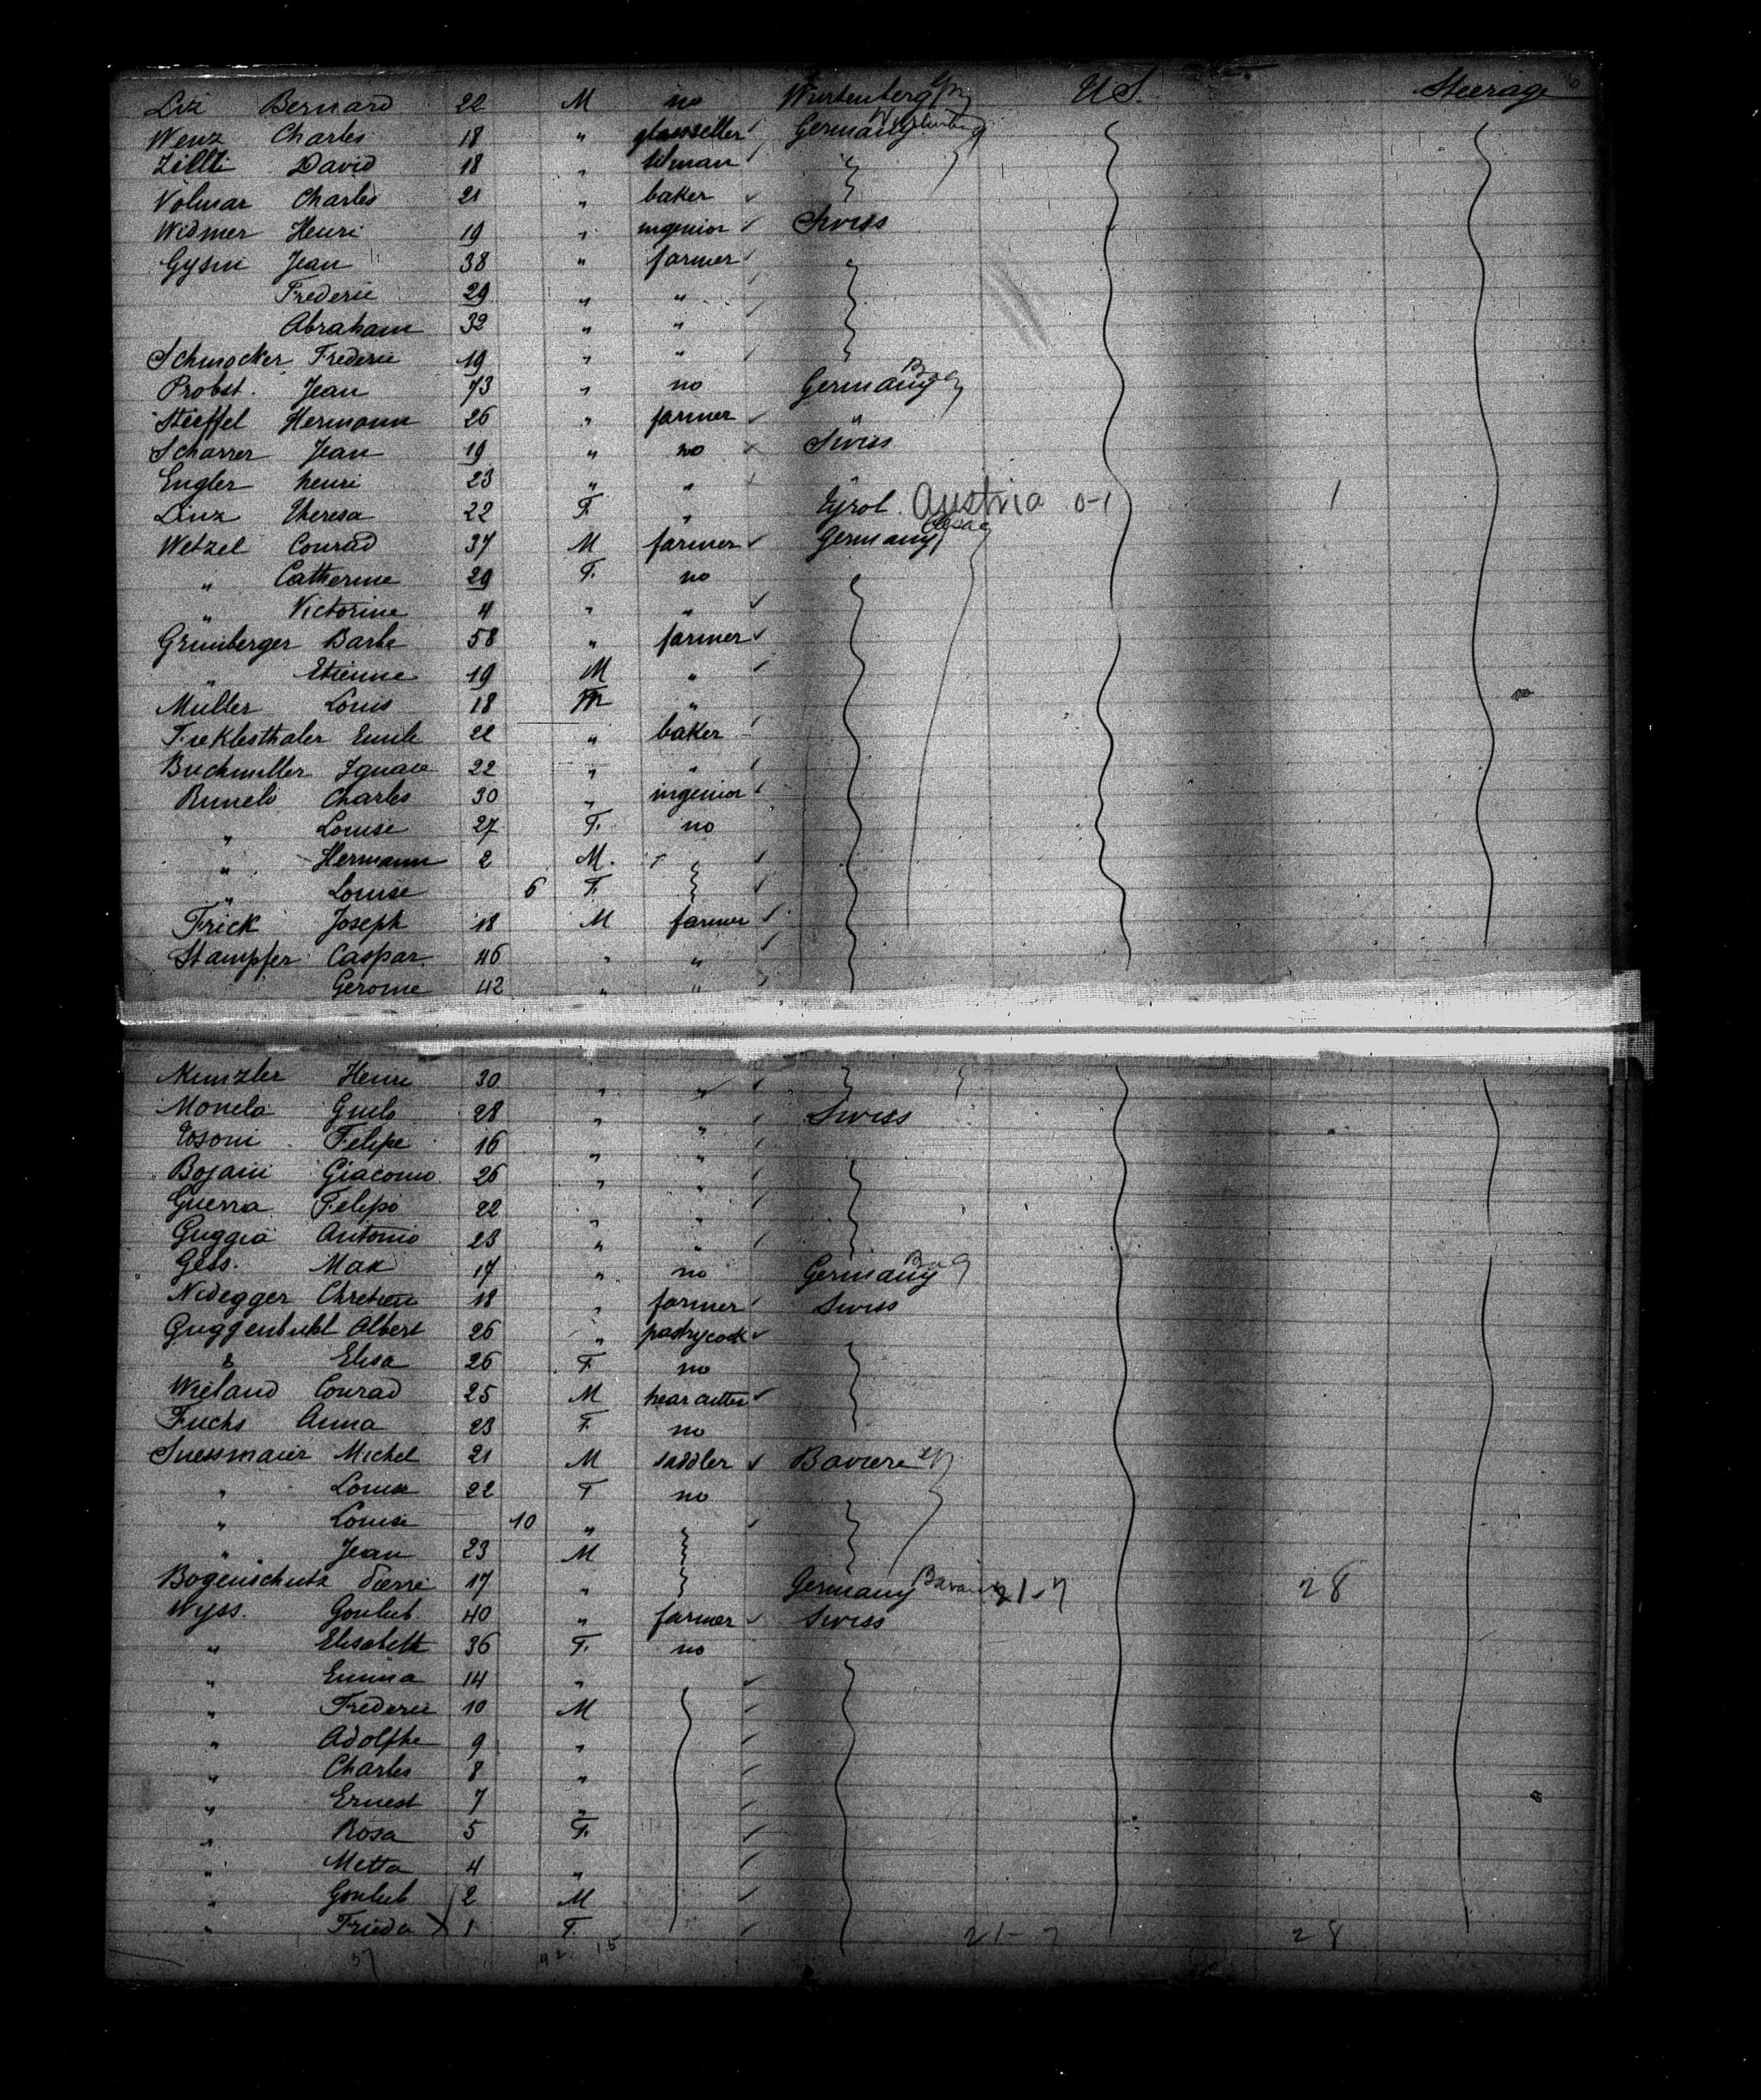 Liz Bernard 22 M no Wurtenberg U S. Steerage
Wenz Charles 18 " glasseller Germany
Zilli David 18 " tilman
Volmar Charles 21 " baker
Widmer Henri 19 " ingenior Swiss
Gysin Jean 38 " farmer
Frederic 29 " "
Abraham 32 " "
Schmocker Frederic 19 " "
Probst. Jean 73 " no Germany
Steffel Hermann 26 " farmer "
Scharrer Jean 19 " no Swiss
Engler henri 23 " " "
Linz Theresa 22 F. " Tyrol. Austria 0-1 1
Wetzel Conrad 37 M farmer Germany
" Catherine 29 F. no
" Victorine 4 " "
Grünberger Barbe 58 " farmer
" Etienne 19 M "
Müller Louis 18 M "
Emile 22 " baker
Buchmiller Ignace 22 " "
Buneli Charles 30 " ingenior
" Louise 27 F. no
" Hermann 2 M.
" Louise 6 F.
Frick Joseph 18 M farmer
Stampfer Caspar 46 " "
Gerome 42 " "
Henri 30 " "
Monela Guelo 28 " " Swiss
Tosoni Felipe 16 " "
Bojani Giacomo 26 " "
Guerra Felipo 22 " "
Guggia Antonio 23 " "
Gess. Max 17 " no Germany
Nidegger Chretien 18 " farmer Swiss
Guggenbuhl Albert 26 " pastrycook
" Elisa 26 F. no
Wieland Conrad 25 M hear cutter
Fuchs Anna 23 F. no
Suessmaier Michel 21 M saddler Baviere
" Louise 22 F no
" Louise 10 "
" Jean 23 M
Bogenschutz Pierre 17 " Germany Bavaria 21-7 28
Wyss. Goulieb. 40 " farmer Swiss
" Elisabeth 36 F. no
" Emma 14 "
" Frederic 10 M
" Adolfhe 9 "
" Charles 8 "
" Ernest 7 "
" Rosa 5 F.
" Metta 4 "
" Goulieb 2 M
" Frieda 1 F. 21-7 28
57 42 15